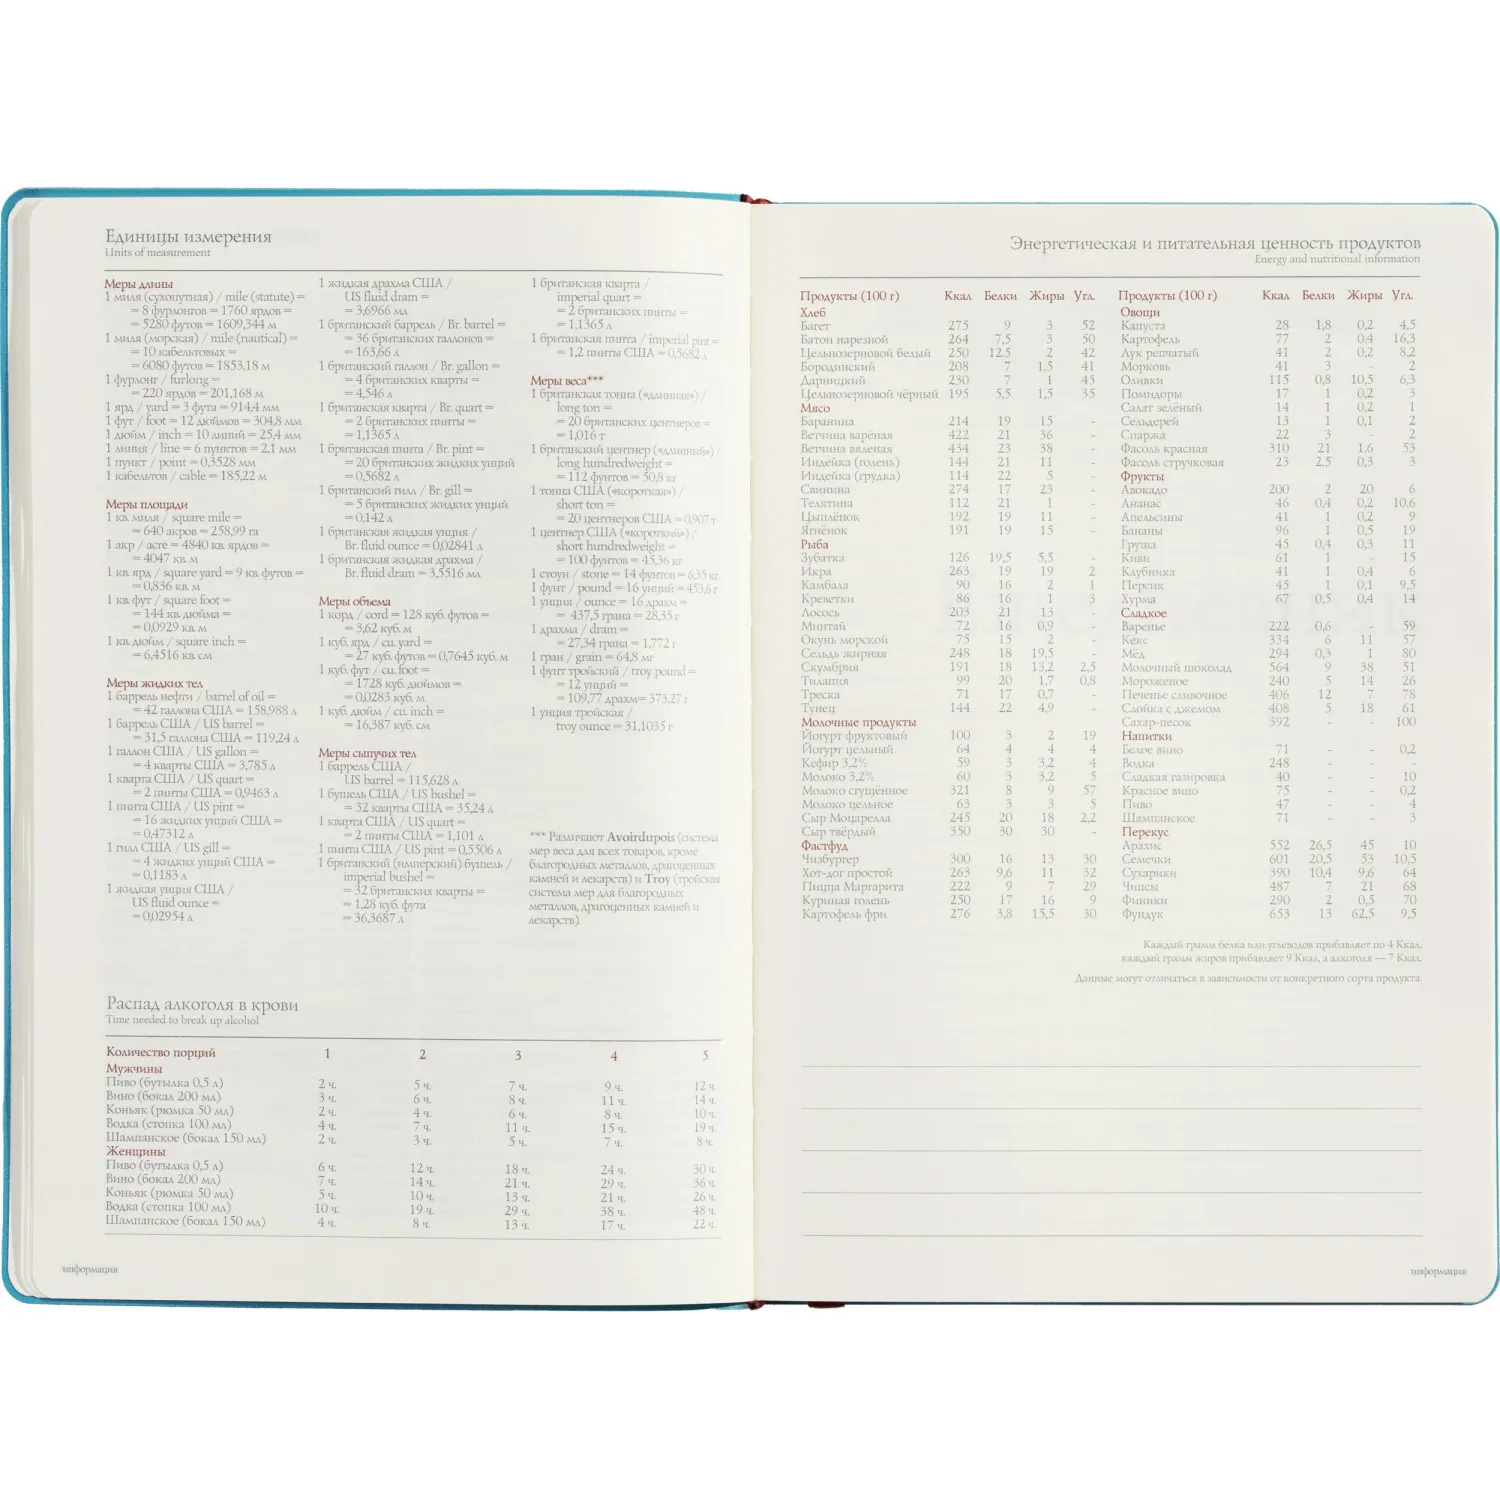 Единицы измерения
Units of measurement
Меры длины
1 миля (сухопутная) / mile (statute) =
= 8 фурлонгов = 1760 ярдов =
= 5280 футов = 1609,344 м
1 миля (морская) / mile (nautical) =
= 10 кабельтовых =
= 6080 футов = 1853,18 м
1 фурлонг / furlong =
= 220 ярдов = 201,168 м
1 ярд / yard = 3 фута = 914,4 мм
1 фут / foot = 12 дюймов = 304,8 мм
1 дюйм / inch = 10 линий = 25,4 мм
1 линия / line = 6 пунктов = 2,1 мм
1 пункт / point = 0,3528 мм
1 кабельтов / cable = 185,22 м
Меры площади
1 кв. миля / square mile =
= 640 акров = 258,99 га
1 акр / acre = 4840 кв. ярдов =
= 4047 кв. м
1 кв. ярд / square yard = 9 кв. футов =
= 0,836 кв. м
1 кв. фут / square foot =
= 144 кв. дюйма =
= 0,0929 кв. м
1 кв. дюйм / square inch =
= 6,4516 кв. см
Меры жидких тел
1 баррель нефти / barrel of oil =
= 42 галлона США = 158,988 л
1 баррель США / US barrel =
= 31,5 галлона США = 119,24 л
1 галлон США / US gallon =
= 4 кварты США = 3,785 л
1 кварта США / US quart =
= 2 пинты США = 0,9463 л
1 пинта США / US pint =
= 16 жидких унций США =
= 0,47312 л
1 гилл США / US gill =
= 4 жидких унций США =
= 0,1183 л
1 жидкая унция США /
US fluid ounce =
= 0,02954 л
1 жидкая драхма США /
US fluid dram =
= 3,6966 мл
1 британский баррель / Br. barrel =
= 36 британских галлонов =
= 163,66 л
1 британский галлон / Br. gallon =
= 4 британских кварты =
= 4,546 л
1 британская кварта / Br. quart =
= 2 британских пинты =
= 1,1365 л
1 британская пинта / Br. pint =
= 20 британских жидких унций
= 0,5682 л
1 британский гилл / Br. gill =
= 5 британских жидких унций
= 0,142 л
1 британская жидкая унция /
Br. fluid ounce = 0,02841 л
1 британская жидкая драхма /
Br. fluid dram = 3,5516 мл
Меры объема
1 корд / cord = 128 куб. футов =
= 3,62 куб. м
1 куб. ярд / cu. yard =
= 27 куб. футов = 0,7645 куб. м
1 куб. фут / cu. foot =
= 1728 куб. дюймов =
= 0,0283 куб. м
1 куб. дюйм / cu. inch =
= 16,387 куб. см
Меры сыпучих тел
1 баррель США /
US barrel = 115,628 л
1 бушель США / US bushel =
= 32 кварты США = 35,24 л
1 кварта США / US quart =
= 2 пинты США = 1,101 л
1 пинта США / US pint = 0,5506 л
1 британский (имперский) бушель /
imperial bushel =
= 32 британских кварты =
= 1,28 куб. фута
= 36,3687 л
1 британская кварта /
imperial quart =
= 2 британских пинты =
= 1,1365 л
1 британская пинта / imperial pint =
= 1,2 пинты США = 0,5682 л
Меры веса***
1 британская тонна («длинная») /
long ton =
= 20 британских центнеров =
= 1,016 т
1 британский центнер («длинный») /
long hundredweight =
= 112 фунтов = 50,8 кг
1 тонна США («короткая») /
short ton =
= 20 центнеров США = 0,907 т
1 центнер США («короткий») /
short hundredweight =
= 100 фунтов = 45,36 кг
1 стоун / stone = 14 фунтов = 6,35 кг
1 фунт / pound = 16 унций = 453,6 г
1 унция / ounce = 16 драхм =
= 437,5 грана = 28,35 г
1 драхма / dram =
= 27,34 грана = 1,772 г
1 гран / grain = 64,8 мг
1 фунт тройский / troy pound =
= 12 унций =
= 109,77 драхм= 373,27 г
1 унция тройская /
troy ounce = 31,1035 г
*** Различают Avoirdupois (система
мер веса для всех товаров, кроме
благородных металлов, драгоценных
камней и лекарств) и Troy (тройская
система мер для благородных
металлов, драгоценных камней и
лекарств).
Распад алкоголя в крови
Time needed to break up alcohol
Количество порций 1 2 3 4 5
Мужчины
Пиво (бутылка 0,5 л) 2 ч. 5 ч. 7 ч. 9 ч. 12 ч.
Вино (бокал 200 мл) 3 ч. 6 ч. 8 ч. 11 ч. 14 ч.
Коньяк (рюмка 50 мл) 2 ч. 4 ч. 6 ч. 8 ч. 10 ч.
Водка (стопка 100 мл) 4 ч. 7 ч. 11 ч. 15 ч. 19 ч.
Шампанское (бокал 150 мл) 2 ч. 3 ч. 5 ч. 7 ч. 8 ч.
Женщины
Пиво (бутылка 0,5 л) 6 ч. 12 ч. 18 ч. 24 ч. 30 ч.
Вино (бокал 200 мл) 7 ч. 14 ч. 21 ч. 29 ч. 36 ч.
Коньяк (рюмка 50 мл) 5 ч. 10 ч. 13 ч. 21 ч. 26 ч.
Водка (стопка 100 мл) 10 ч. 19 ч. 29 ч. 38 ч. 48 ч.
Шампанское (бокал 150 мл) 4 ч. 8 ч. 13 ч. 17 ч. 22 ч.
информация
Энергетическая и питательная ценность продуктов
Energy and nutritional information
Продукты (100 г) Ккал Белки Жиры Угл.
Хлеб
Багет 275 9 3 52
Батон нарезной 264 7,5 3 50
Цельнозерновой белый 250 12.5 2 42
Бородинский 208 7 1,5 41
Дарницкий 230 7 1 45
Цельнозерновой чёрный 195 5,5 1,5 35
Мясо
Баранина 214 19 15 -
Ветчина варёная 422 21 36 -
Ветчина вяленая 434 23 38 -
Индейка (голень) 144 21 11 -
Индейка (грудка) 114 22 5 -
Свинина 274 17 23 -
Телятина 112 21 1 -
Цыплёнок 192 19 11 -
Ягнёнок 191 19 15 -
Рыба
Зубатка 126 19,5 5,5 -
Икра 263 19 19 2
Камбала 90 16 2 1
Креветки 86 16 1 3
Лосось 203 21 13 -
Минтай 72 16 0,9 -
Окунь морской 75 15 2 -
Сельдь жирная 248 18 19,5 -
Скумбрия 191 18 13,2 2,5
Тилапия 99 20 1,7 0,8
Треска 71 17 0,7 -
Тунец 144 22 4,9 -
Молочные продукты
Йогурт фруктовый 100 3 2 19
Йогурт цельный 64 4 4 4
Кефир 3,2% 59 3 3,2 4
Молоко 3,2% 60 3 3,2 5
Молоко сгущённое 321 8 9 57
Молоко цельное 63 3 3 5
Сыр Моцарелла 245 20 18 2,2
Сыр твёрдый 350 30 30 -
Фастфуд
Чизбургер 300 16 13 30
Хот-дог простой 263 9,6 11 32
Пицца Маргарита 222 9 7 29
Куриная голень 250 17 16 9
Картофель фри 276 3,8 15,5 30
Продукты (100 г) Ккал Белки Жиры Угл.
Овощи
Капуста 28 1,8 0,2 4,5
Картофель 77 2 0,4 16,3
Лук репчатый 41 2 0,2 8,2
Морковь 41 3 - 2
Оливки 115 0,8 10,5 6,3
Помидоры 17 1 0,2 3
Салат зелёный 14 1 0,2 1
Сельдерей 13 1 0,1 2
Спаржа 22 3 - 2
Фасоль красная 310 21 1,6 53
Фасоль стручковая 23 2,5 0,3 3
Фрукты
Авокадо 200 2 20 6
Ананас 46 0,4 0,2 10,6
Апельсины 41 1 0,2 9
Бананы 96 1 0,5 19
Груша 45 0,4 0,3 11
Киви 61 1 - 15
Клубника 41 1 0,4 6
Персик 45 1 0,1 9,5
Хурма 67 0,5 0,4 14
Сладкое
Варенье 222 0,6 - 59
Кекс 334 6 11 57
Мёд 294 0,3 1 80
Молочный шоколад 564 9 38 51
Мороженое 240 5 14 26
Печенье сливочное 406 12 7 78
Слойка с джемом 408 5 18 61
Сахар-песок 392 - - 100
Напитки
Белое вино 71 - - 0,2
Водка 248 - - -
Сладкая газировка 40 - - 10
Красное вино 75 - - 0,2
Пиво 47 - - 4
Шампанское 71 - - 3
Перекус
Арахис 552 26,5 45 10
Семечки 601 20,5 53 10,5
Сухарики 390 10,4 9,6 64
Чипсы 487 7 21 68
Финики 290 2 0,5 70
Фундук 653 13 62,5 9,5
Каждый грамм белка или углеводов прибавляет по 4 Ккал,
каждый грамм жиров прибавляет 9 Ккал, а алкоголя — 7 Ккал.
Данные могут отличаться в зависимости от конкретного сорта продукта.
информация